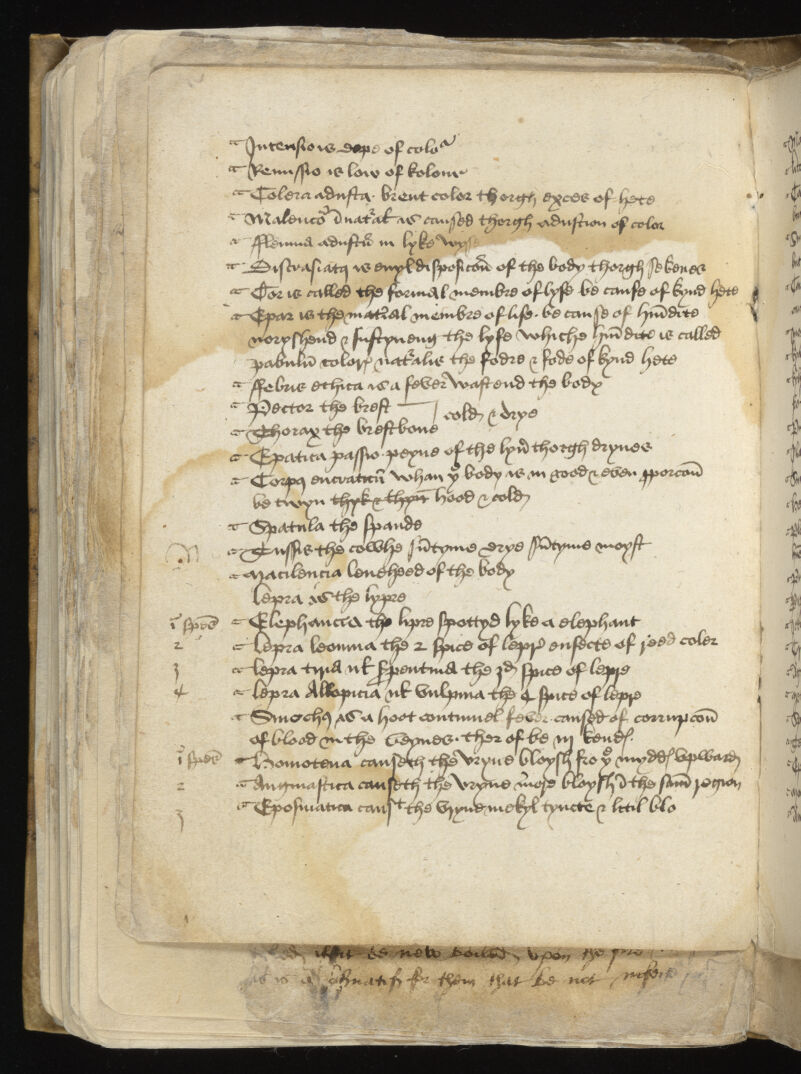 Intensio is depe of colour
Remissio is low of kolour
Colera adusta. brent color thorgh exces of hete
Malenco dnatrat is caused thorgh adustion of color
fflemma adustu in lyke wyse
Discrasiatus is euyl disposicon of the body thorgh sekenes
Cor is called the formal membre of lyfe be cause of kynd hete
Epar is the matral membre of life. be cause of humdite
noryshend & sustyneng the lyfe whiche humdite is called
pabulu coloris natralis the fodre & fode of kynd hete
ffebris ethica is a fever wastend the body
Pector the brest
cold & drye
Thorax the brestbone
Epatica passio. peyne of the lyuer thorgh drynes
Corpus encraticu whan ye body is in good & even pporcon
be twyn thyk & thyn hood & cold
Spatula the spaude
Tussis the cowhe sutyme drye sutyme moyst
Macilencia leneheed of the body
lepra is the lypre
i spes Elephancia the lipre spottyd lyke a elephant
2 lepra leonina the 2 spice of lepre enfecte of reed coler
3 lepra tiria ul serpentina the 3d spice of lepre
4 lepra Allopicia ul vulpina the 4 spice of lepre
Sinochus is a hoot continuel fever caused of corrupcon
of blood in the veynes. ther of be iij kendes
i spes Homotena causeth the vryne bloysh fro ye myddes vpward
2 Augmastica causeth the vryne more bloysh in the same region
3 Eposmatica caust the vryne mekyl tyncte & litil blo
it be new boiled vpon the fire
is a for them that be not